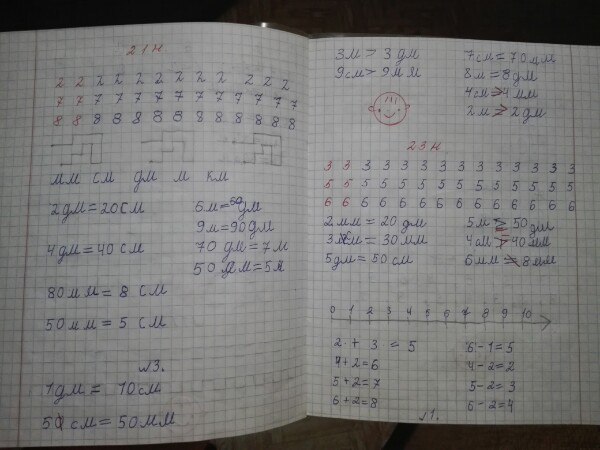 21 н
2 2 2 2 2 2 2 2 2 2 2 2
7 7 7 7 7 7 7 7 7 7 7 7 7
8 8 8 8 8 8 8 8 8 8 8 8 8
мм см дм м км
2 дм = 20 см
6 м = 60 дм
9 м = 90 дм
4 дм = 40 см
70 дм = 7 м
50 дм = 5 м
80 мм = 8 см
50 мм = 5 см
№3.
1 дм = 10 см
50 см = 50 мм
3 м > 3 дм
7 см = 70 мм
9 см > 9 мм
8 м = 8 дм
4 см > 4 мм
2 м > 2 дм
23 н
3 3 3 3 3 3 3 3 3 3 3 3 3 3
5 5 5 5 5 5 5 5 5 5 5 5 5 5
6 6 6 6 6 6 6 6 6 6 6 6 6 6
2 мм = 20 дм
5 м = 50 дм
3 см = 30 мм
4 см > 40 мм
5 дм = 50 см
6 мм = 8 мм
0 1 2 3 4 5 6 7 8 9 10
2 + 3 = 5
6 - 1 = 5
4 + 2 = 6
4 - 2 = 2
5 + 2 = 7
5 - 2 = 3
6 + 2 = 8
6 - 2 = 4
№1.